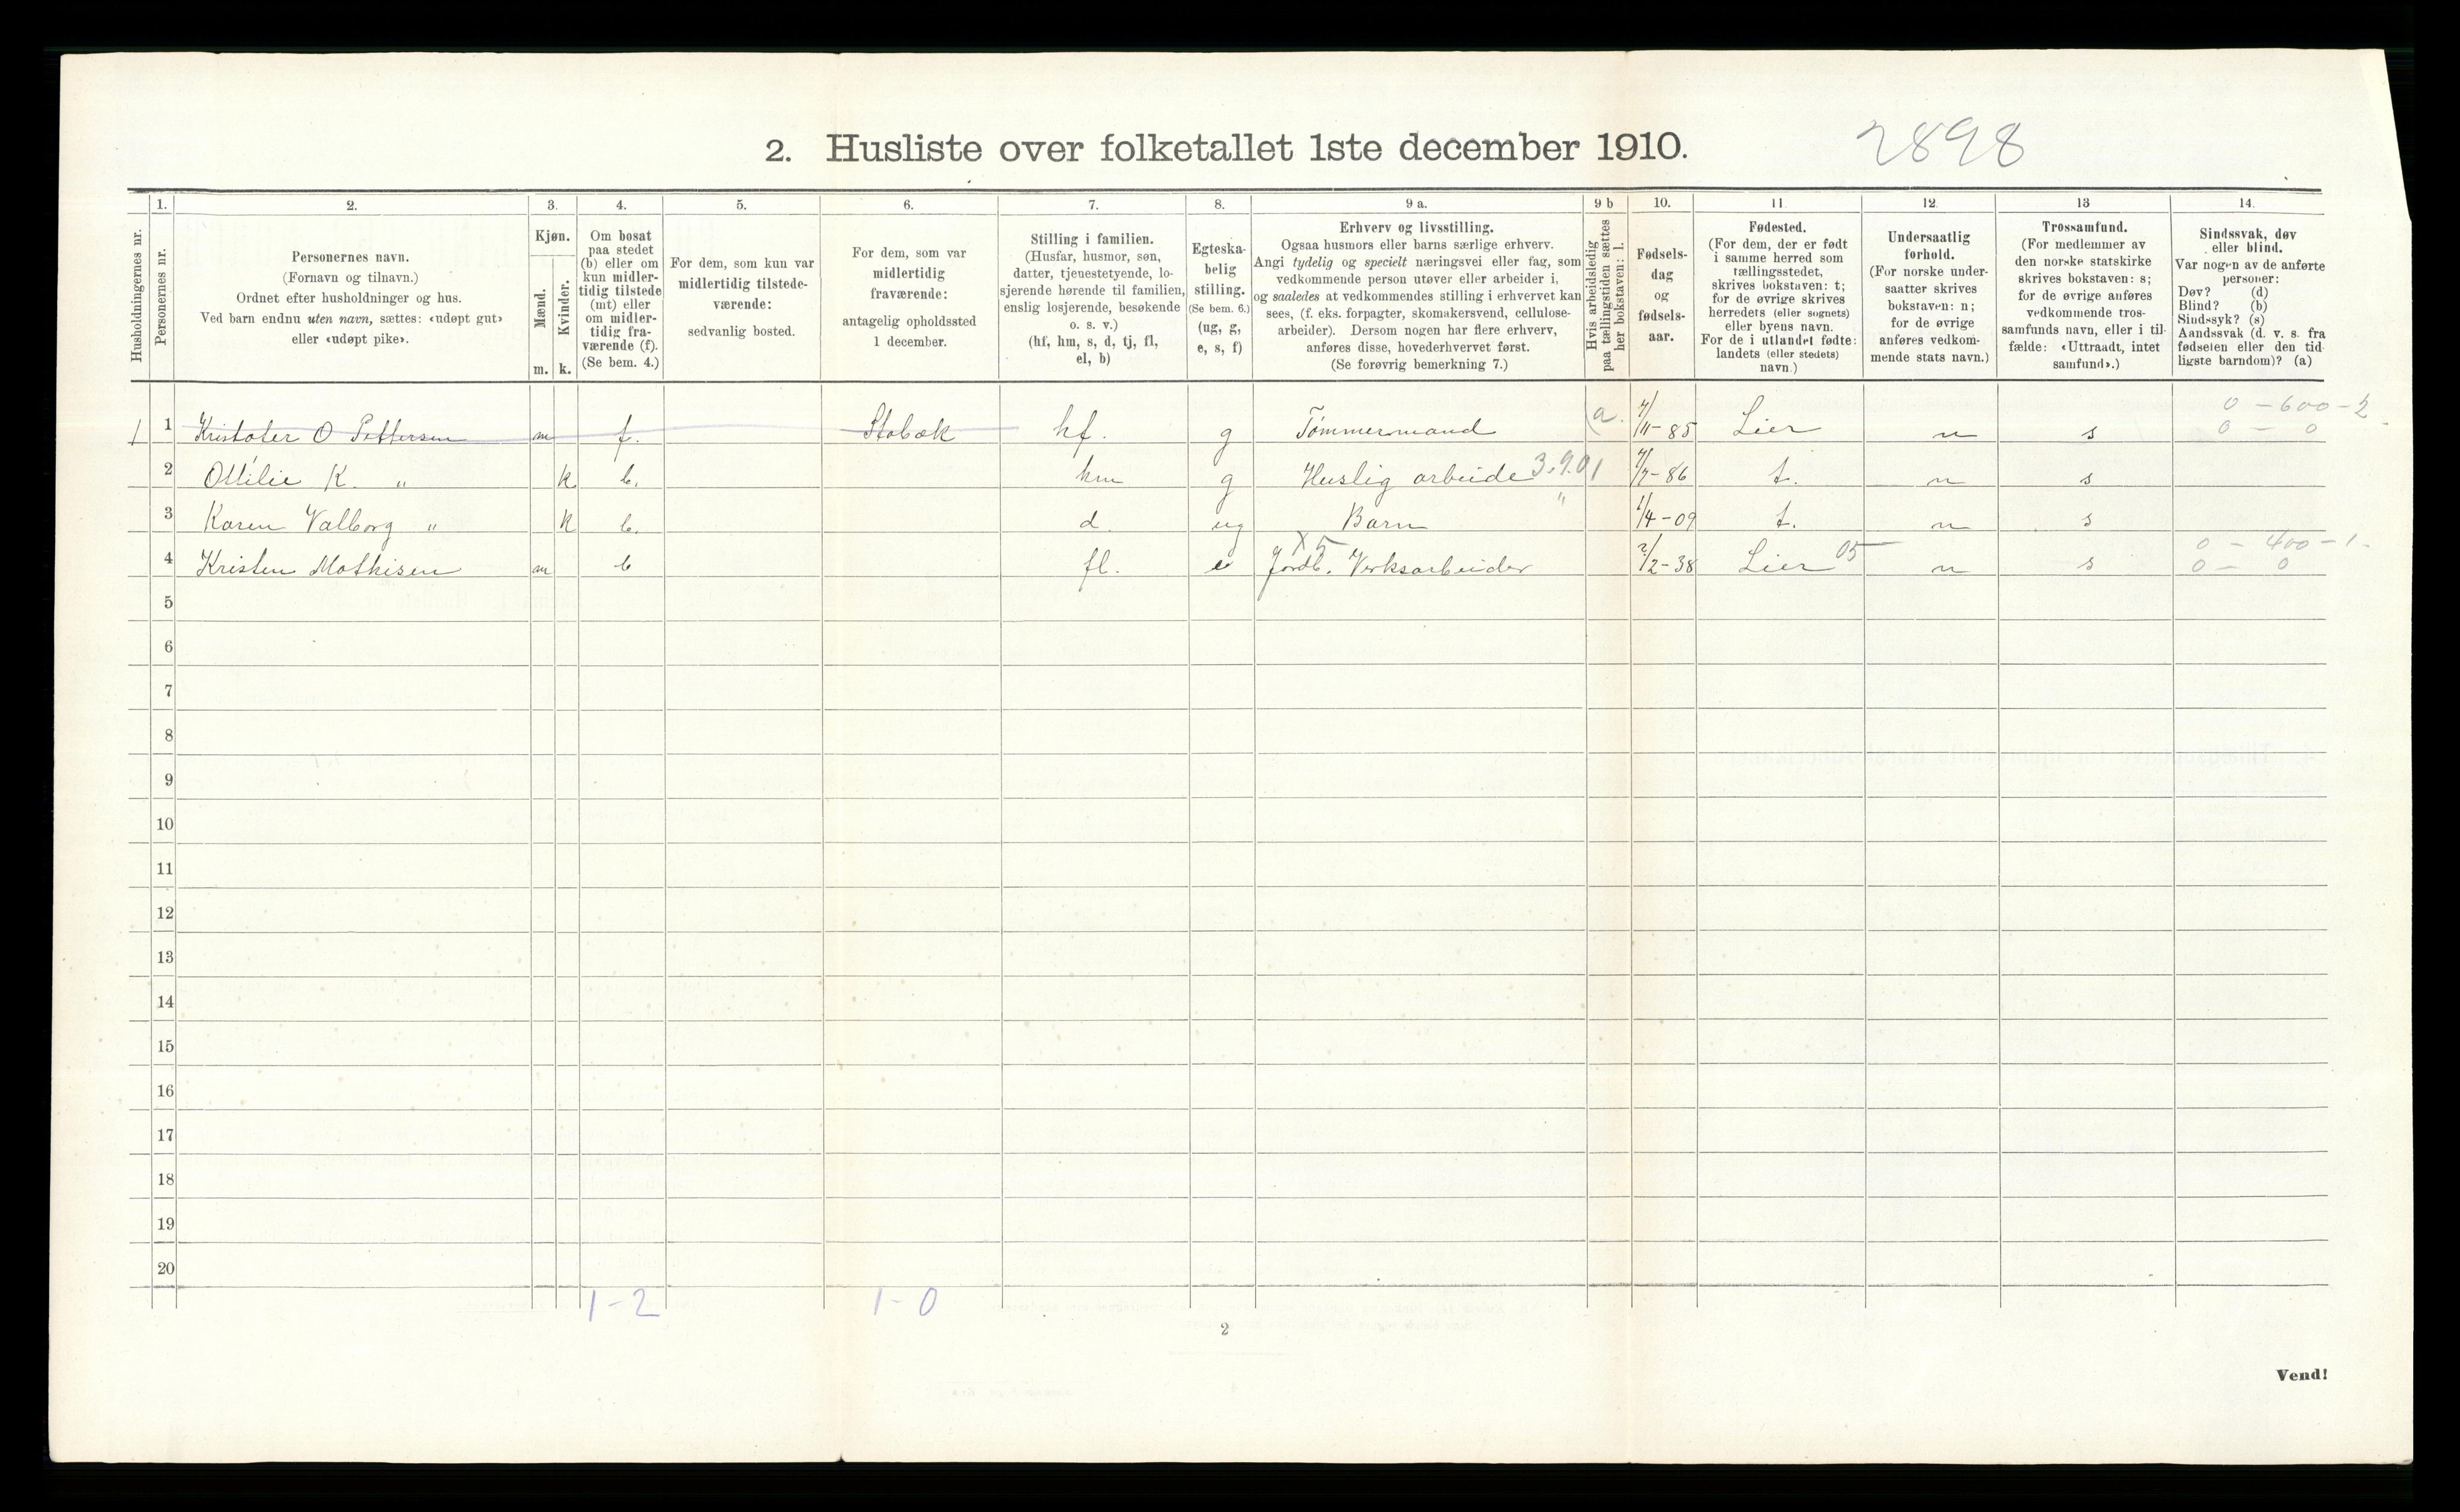 2. Husliste over folketallet 1ste december 1910. 2898
Husholdningernes nr.
1. Personernes nr.
2. Personernes navn.
(Fornavn og tilnavn.)
Ordnet efter husholdninger og hus.
Ved barn endnu uten navn, sættes: «udøpt gut»
eller «udøpt pike».
3. Kjøn.
Mænd. m.
Kvinder. k.
4. Om bosat
paa stedet
(b) eller om
kun midler-
tidig tilstede
(mt) eller
om midler-
tidig fra-
værende (f).
(Se bem. 4.)
5. For dem, som kun var
midlertidig tilstede-
værende:
sedvanlig bosted.
6. For dem, som var
midlertidig
fraværende:
antagelig opholdssted
1 december.
7. Stilling i familien.
(Husfar, husmor, søn,
datter, tjenestetyende, lo-
sjerende hørende til familien,
enslig losjerende, besøkende
o. s. v.)
(hf, hm, s, d, tj, fl,
el, b)
8. Egteska-
belig
stilling.
(Se bem. 6.)
(ug, g,
e, s, f)
9 a. Erhverv og livsstilling.
Ogsaa husmors eller barns særlige erhverv.
Angi tydelig og specielt næringsvei eller fag, som
vedkommende person utøver eller arbeider i,
og saaledes at vedkommendes stilling i erhvervet kan
sees, (f. eks. forpagter, skomakersvend, cellulose-
arbeider). Dersom nogen har flere erhverv,
anføres disse, hovederhvervet først.
(Se forøvrig bemerkning 7.)
9 b Hvis arbeidsledig
paa tællingstiden sættes
her bokstaven: l.
10. Fødsels-
dag
og
fødsels-
aar.
11. Fødested.
(For dem, der er født
i samme herred som
tællingsstedet,
skrives bokstaven: t;
for de øvrige skrives
herredets (eller sognets)
eller byens navn.
For de i utlandet fødte:
landets (eller stedets)
navn.)
12. Undersaatlig
forhold.
(For norske under-
saatter skrives
bokstaven: n;
for de øvrige
anføres vedkom-
mende stats navn.)
13 Trossamfund.
(For medlemmer av
den norske statskirke
skrives bokstaven: s;
for de øvrige anføres
vedkommende tros-
samfunds navn, eller i til-
fælde: «Uttraadt, intet
samfund».)
14. Sindssvak, døv
eller blind.
Var nogen av de anførte
personer:
Døv? (d)
Blind? (b)
Sindssyk? (s)
Aandssvak (d. v. s. fra
fødselen eller den tid-
ligste barndom)? (a)
0 - 600 - 2
1 1 Kristofer O Pettersen m f. Stabæk hf. g Tömmermand a. 4/11-85 Lier n s 0 - 0
2 Ottilie K. „ k b. hm g Huslig arbeide 3.9.01 7/7-86 t. n s
3 Karen Valborg „ k b. d. ug Barn " 1/4-09 t. n s
X5 05 0 - 400 - 1 -
4 Kristen Mathisen m b fl. e Jordb. Verksarbeider 2/2-38 Lier n s 0 - 0
5
6
7
8
9
10
11
12
13
14
15
16
17
18
19
20
1-2 1-0
2
Vend!